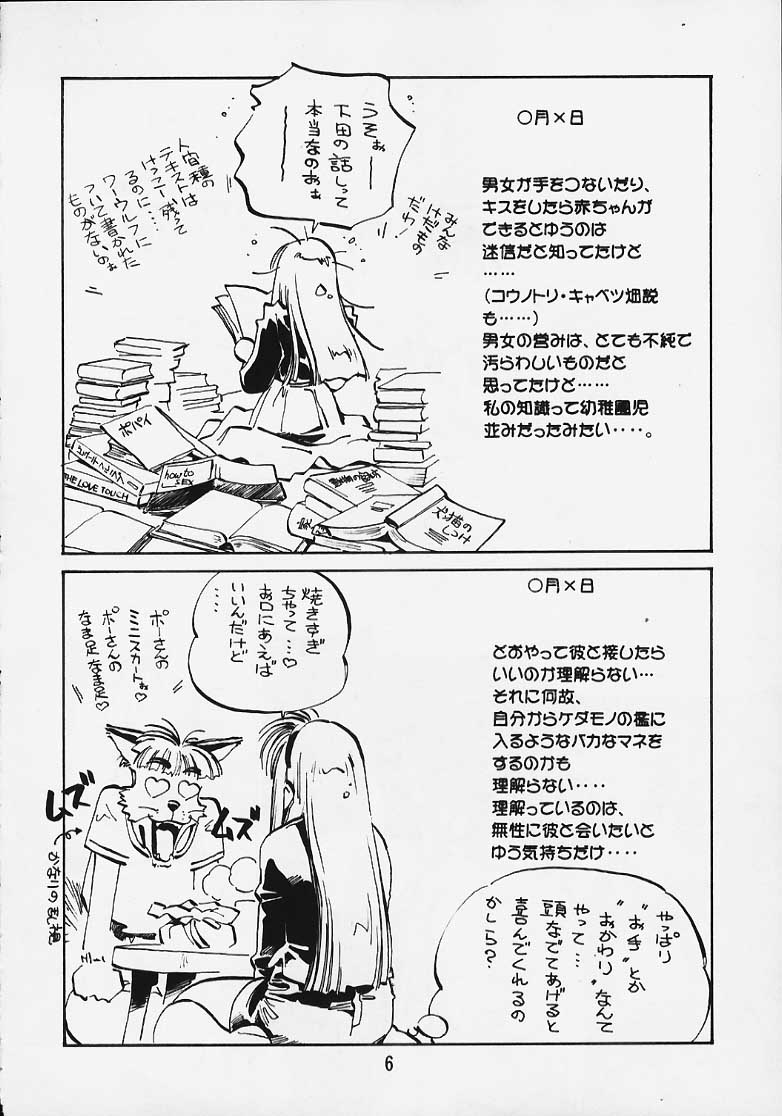 〇月×日
男女が手をつないだり、
キスをしたら赤ちゃんが
できるとゆうのは
迷信だと知ってたけど
……
(コウノトリ・キャベツ畑説
も……)
男女の営みは、とても不純で
汚らわしいものだと
思ってたけど……
私の知識って幼稚園児
並みだったみたい‥‥。
うそぉ――
下田の話しって
本当なのぉぉ
――
みんな
けだもの
だわ!
人間種の
テキストは
けっこー残って
るのに‥‥
ワーウルフに
ついて書かれた
ものがないのぉ
ポパイ
how to
SEX
THE LOVE TOUCH
犬猫の
しつけ
〇月×日
どおやって彼と接したら
いいのか理解らない…
それに何故、
自分からケダモノの檻に
入るようなバカなマネを
するのかも
理解らない‥‥
理解っているのは、
無性に彼と会いたいと
ゆう気持ちだけ‥‥
焼きすぎ
ちゃって…♡
お口にあえば
いいんだけど
‥‥
ポーさんの
ミニスカートぉ♡
ポーさんの
なま足なま足♡
ムズ
ムズ
かなりの乱視
やっぱり
"お手"とか
"おかわり"なんて
やって…
頭なでてあげると
喜んでくれるの
かしら?
6